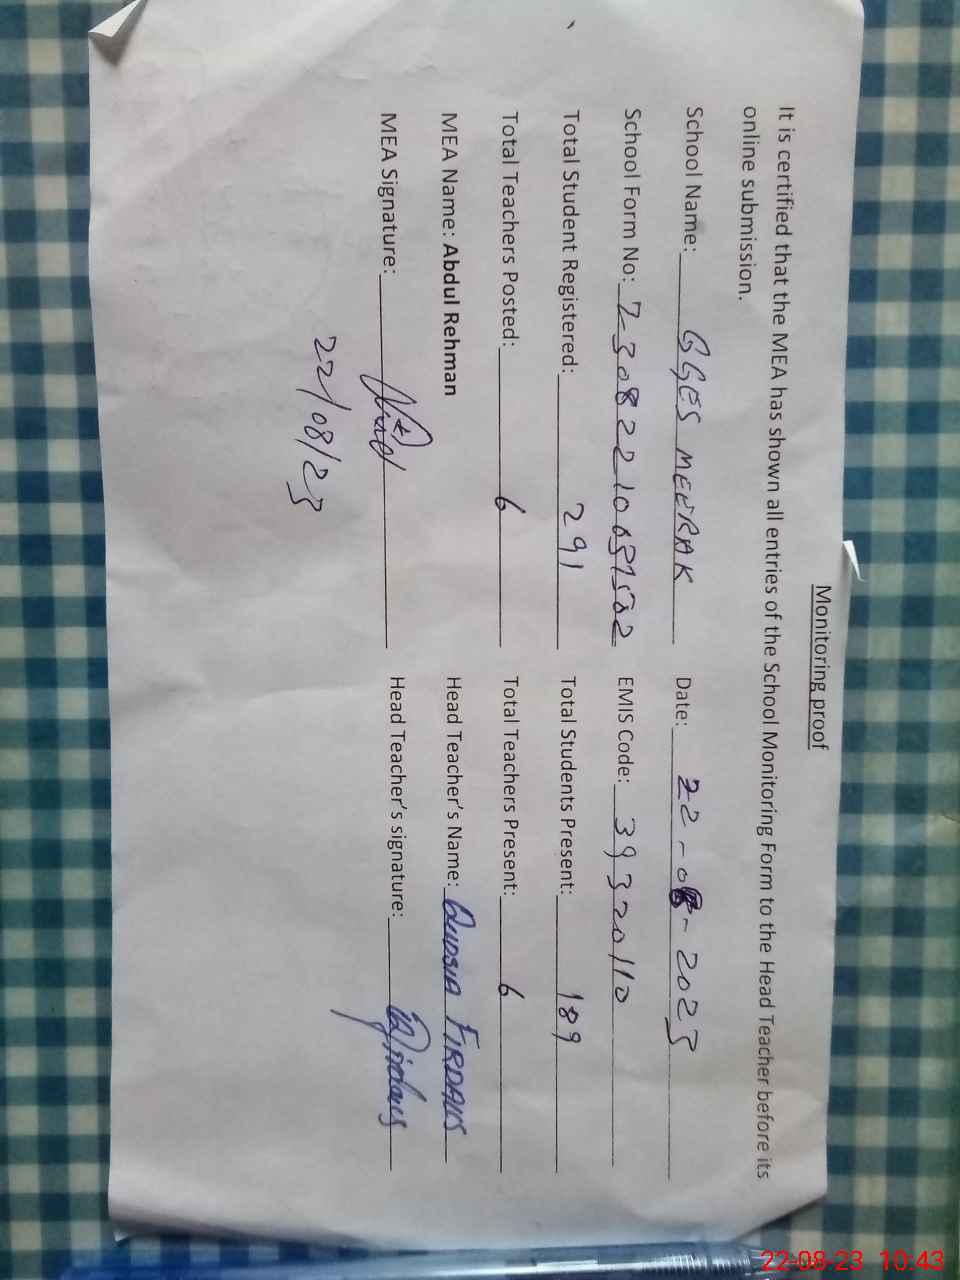 Monitoring proof
It is certified that the MEA has shown all entries of the School Monitoring Form to the Head Teacher before its
online submission.
School Name: GGES MEERAK Date: 22-08-2023
School Form No: 230822100 EMIS Code: 39320110
Total Student Registered: 291 Total Students Present: 189
Total Teachers Posted: 6 Total Teachers Present: 6
MEA Name: Abdul Rehman Head Teacher's Name: QUDSIA FIRDAUS
MEA Signature: Head Teacher's signature: Qfirdaus
22/08/23
22-08-23 10:43